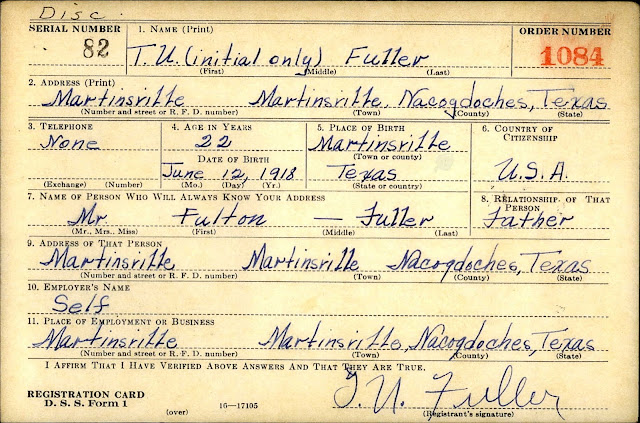 Disc.
SERIAL NUMBER 1. NAME (Print) ORDER NUMBER
82 T. U. (initial only) Fuller 1084
(First) (Middle) (Last)
2. ADDRESS (Print)
Martinsville Martinsville, Nacogdoches, Texas
(Number and street or R. F. D. number) (Town) (County) (State)
3. TELEPHONE 4. AGE IN YEARS 5. PLACE OF BIRTH 6. COUNTRY OF CITIZENSHIP
None 22 Martinsville
DATE OF BIRTH (Town or county)
June 12, 1918 Texas U.S.A.
(Exchange) (Number) (Mo.) (Day) (Yr.) (State or country)
7. NAME OF PERSON WHO WILL ALWAYS KNOW YOUR ADDRESS 8. RELATIONSHIP OF THAT PERSON
Mr Fulton — Fuller Father
(Mr., Mrs., Miss) (First) (Middle) (Last)
9. ADDRESS OF THAT PERSON
Martinsville Martinsville Nacogdoches, Texas
(Number and street or R. F. D. number) (Town) (County) (State)
10. EMPLOYER'S NAME
Self
11. PLACE OF EMPLOYMENT OR BUSINESS
Martinsville Martinsville, Nacogdoches, Texas
(Number and street or R. F. D. number) (Town) (County) (State)
I AFFIRM THAT I HAVE VERIFIED ABOVE ANSWERS AND THAT THEY ARE TRUE.
T. U. Fuller
REGISTRATION CARD
D. S. S. Form 1 (over) 16—17105 (Registrant's signature)